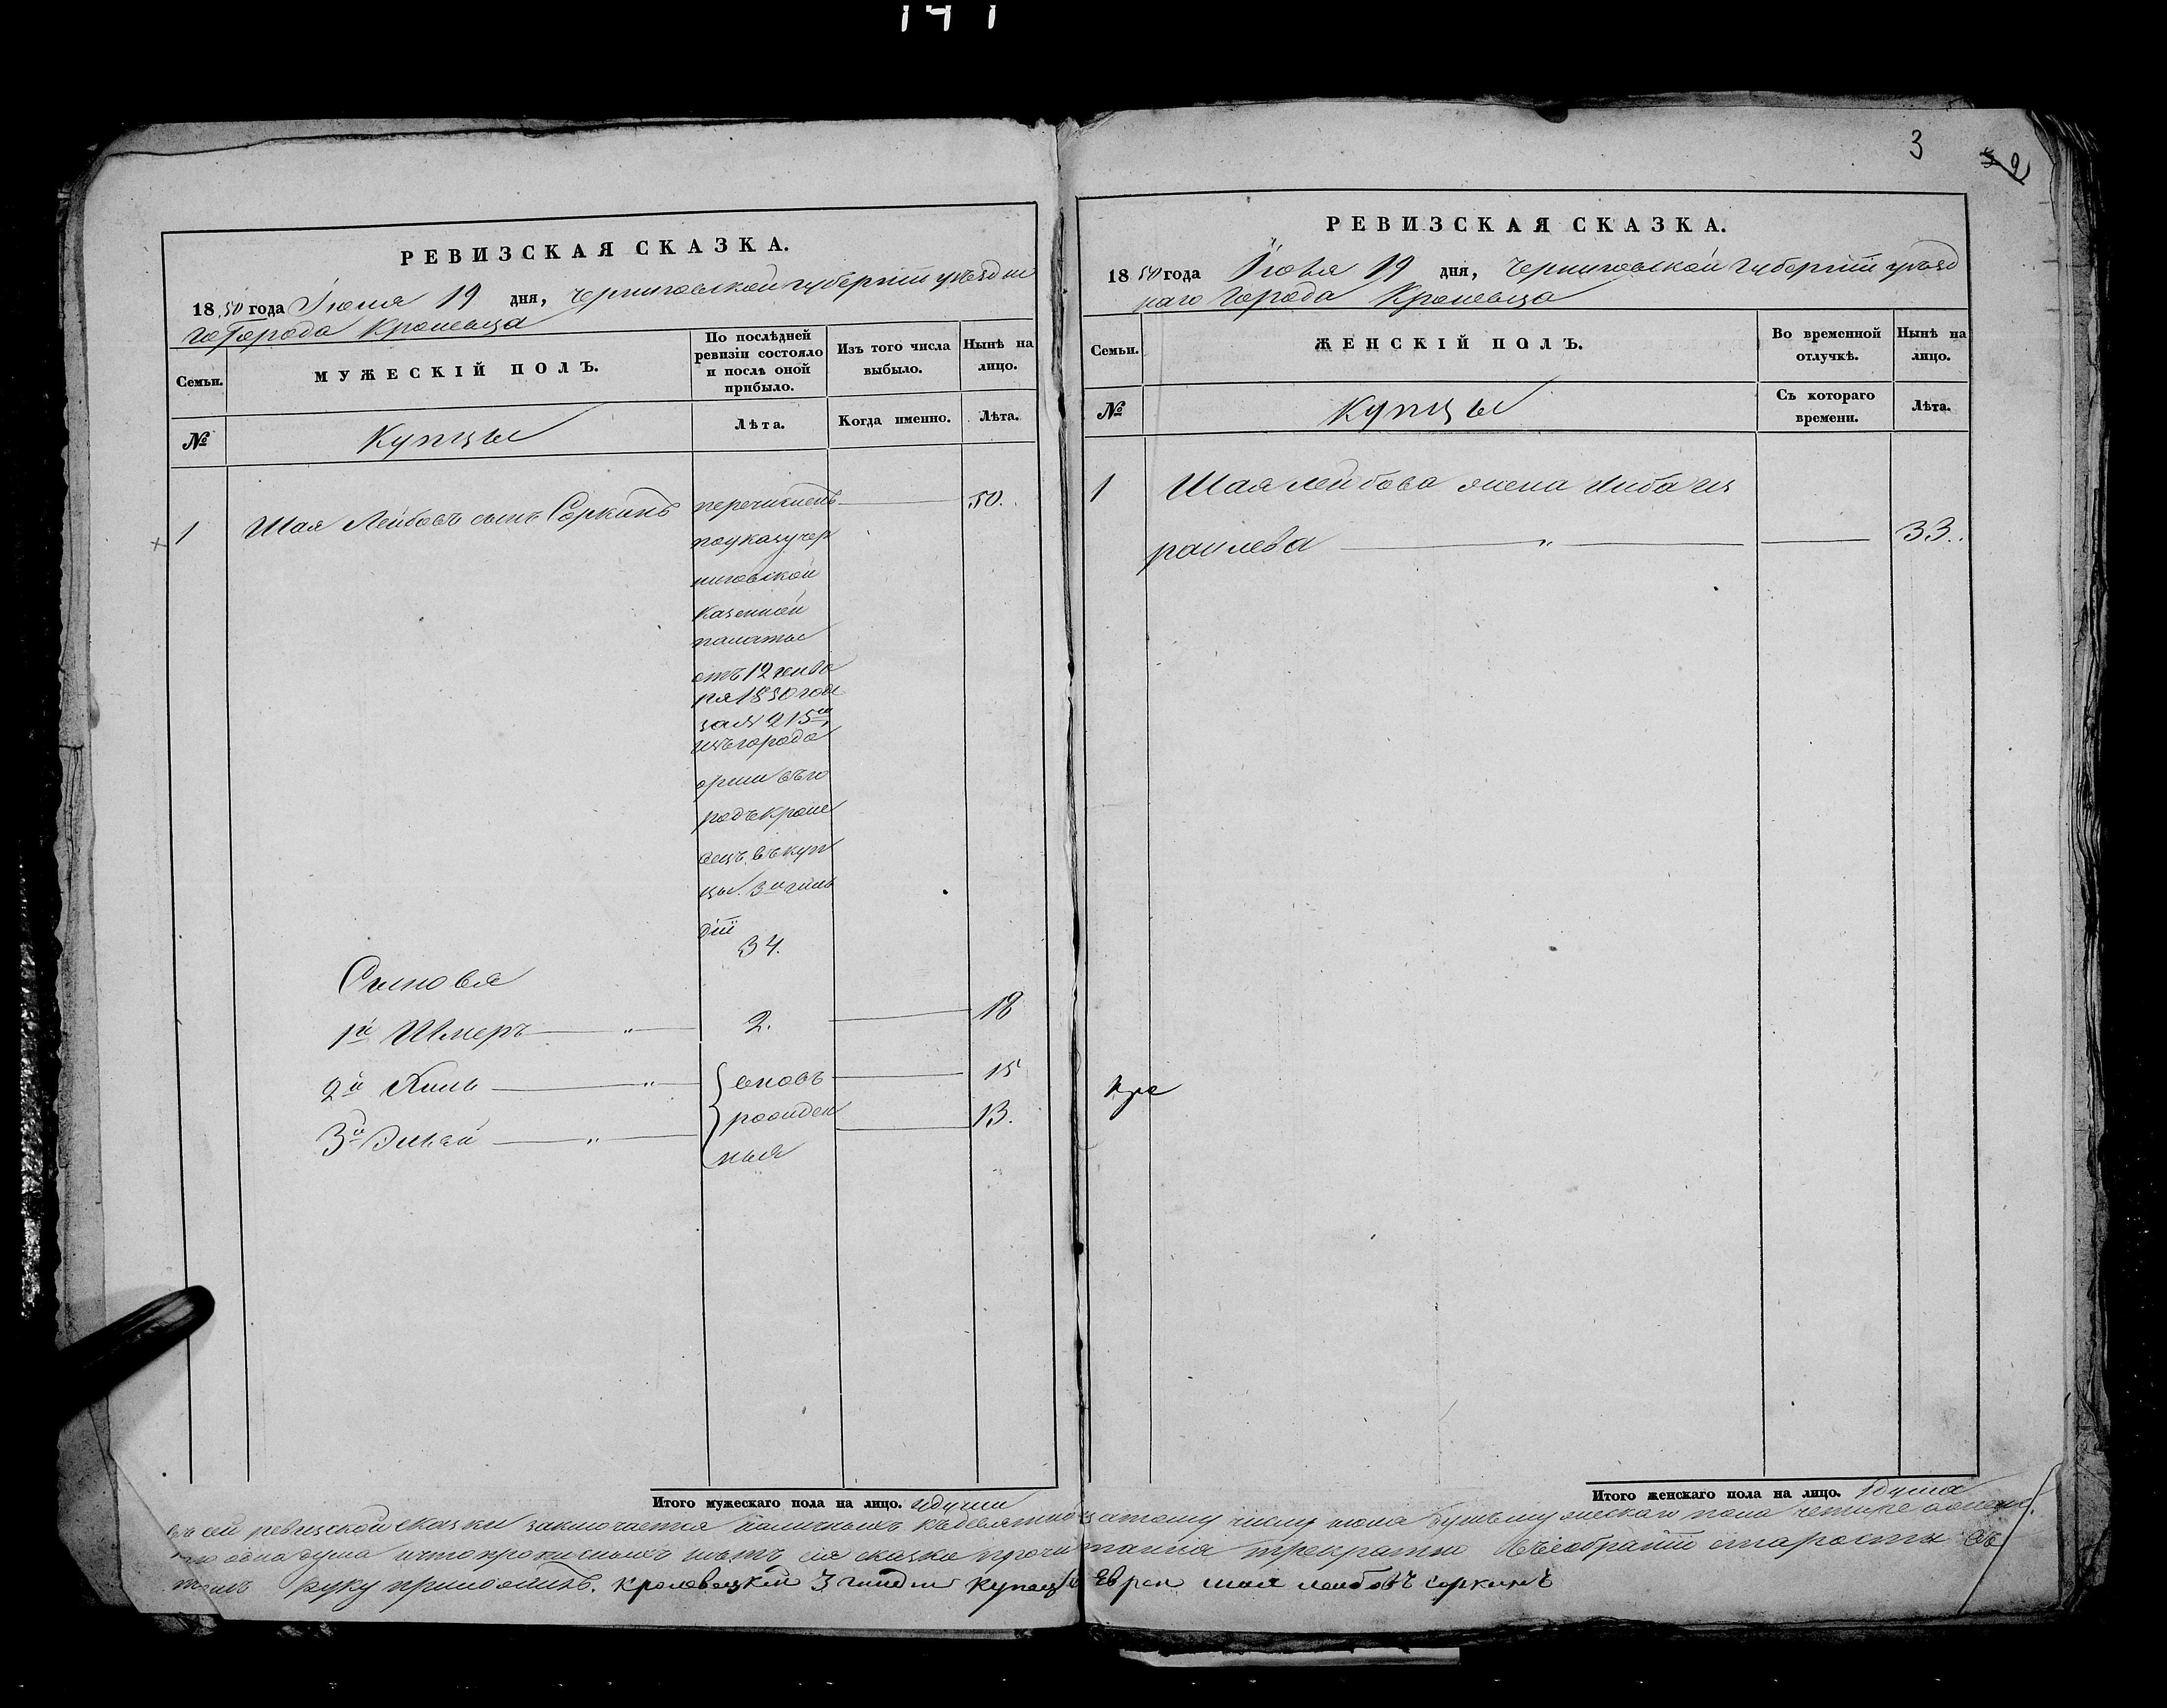 141
РЕВИЗСКАЯ СКАЗКА.
1850 года Июня 19 дня, Черниговской губернiи уѣздна
го Города Кролевца
Семьи.
МУЖЕСКIЙ ПОЛЪ.
По послѣдней ревизiи состояло и послѣ оной прибыло.
Изъ того числа выбыло.
Нынѣ на лицо.
№
Купцы
Лѣта.
Когда именно.
Лѣта.
1 Шая Лейбовъ сынъ Соркинъ перечисленъ 50.
по указу чер
ниговской
казенной
палаты
отъ 12 генва
ря 1850 года
за № 215м
изъ города
орши въ го
родъ кроле
вецъ въ куп
цы 3й гиль
дiи
34.
Сыновья
1й Шмеръ 2. 18
2й Хиль вновь 15
рожден
3й 13.
ныя
Итого мужескаго пола на лицо. 4 души
3
РЕВИЗСКАЯ СКАЗКА.
1850 года Июня 19 дня, Черниговской Губернiи уѣзд
наго Города Кролевца
Семьи.
ЖЕНСКIЙ ПОЛЪ.
Во временной отлучкѣ.
Нынѣ на лицо.
№
Купцы
Съ котораго времени.
Лѣта.
1 Шая Лейбова жена Либа Из
раилева 33.
Итого женскаго пола на лицо. 1 душа
ревизской сказки заключается наличныхъ къ девятнадцатому числу июня душъ мужескаго пола четыре а женска
го одна душа и что прописныхъ нѣтъ сiя сказка прочитанна троекратно въ собранiи старосты въ
руку приложилъ. кролевецкiй 3 гилдiи купецъ Еврей шая леибовъ соркинъ